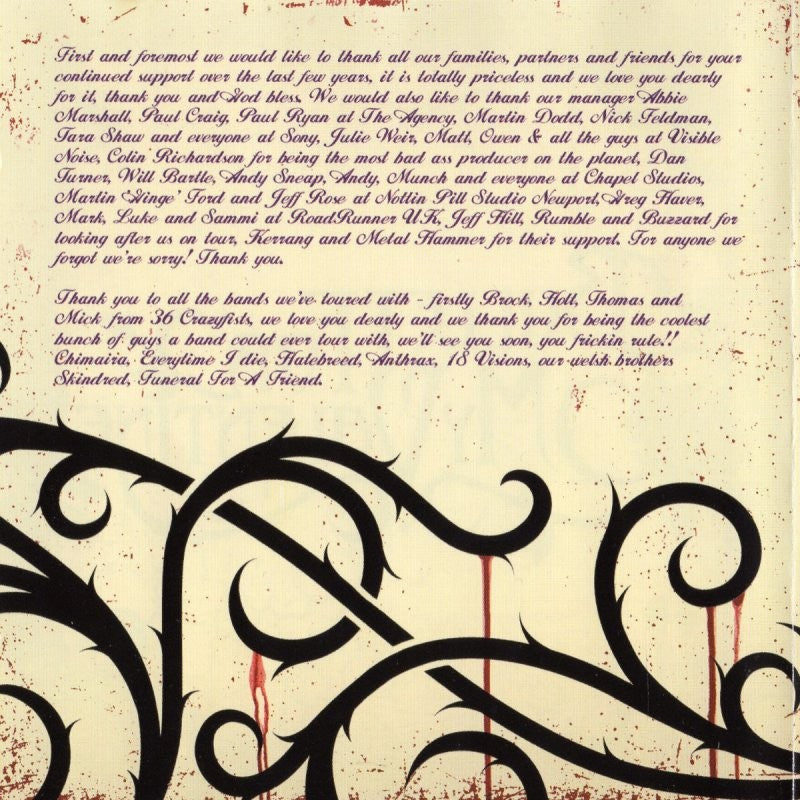 First and foremost we would like to thank all our families, partners and friends for your
continued support over the last few years, it is totally priceless and we love you dearly
for it, thank you and God bless. We would also like to thank our manager Abbie
Marshall, Paul Craig, Paul Ryan at The Agency, Martin Dodd, Nick Feldman,
Tara Shaw and everyone at Sony, Julie Weir, Matt, Owen & all the guys at Visible
Noise, Colin Richardson for being the most bad ass producer on the planet, Dan
Turner, Will Bartle, Andy Sneap, Andy, Munch and everyone at Chapel Studios,
Martin 'Ginge' Ford and Jeff Rose at Nottin Pill Studio Newport, Greg Haver,
Mark, Luke and Sammi at RoadRunner UK, Jeff Hill, Rumble and Buzzard for
looking after us on tour, Kerrang and Metal Hammer for their support. For anyone we
forgot we're sorry! Thank you.
Thank you to all the bands we've toured with - firstly Brock, Holt, Thomas and
Mick from 36 Crazyfists, we love you dearly and we thank you for being the coolest
bunch of guys a band could ever tour with, we'll see you soon, you frickin rule!!
Chimaira, Everytime I die, Hatebreed, Anthrax, 18 Visions, our welsh brothers
Skindred, Funeral For A Friend.